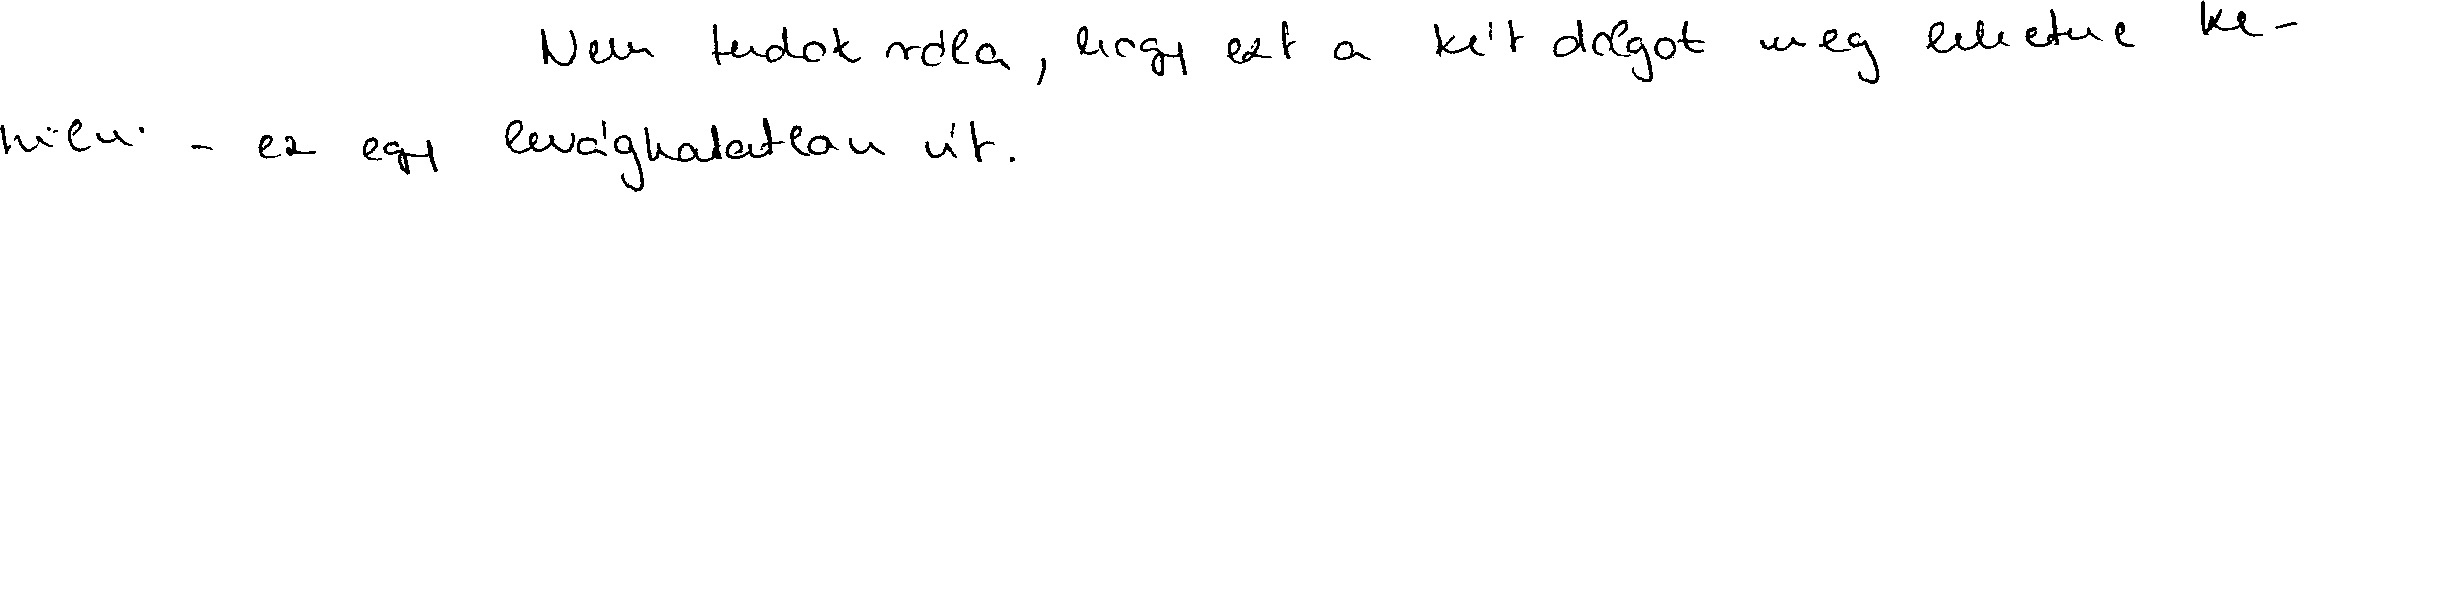 Nem tudok róla, hogy ezt a két dolgot meg lehetne ke-
rülni - ez egy levághatatlan út.